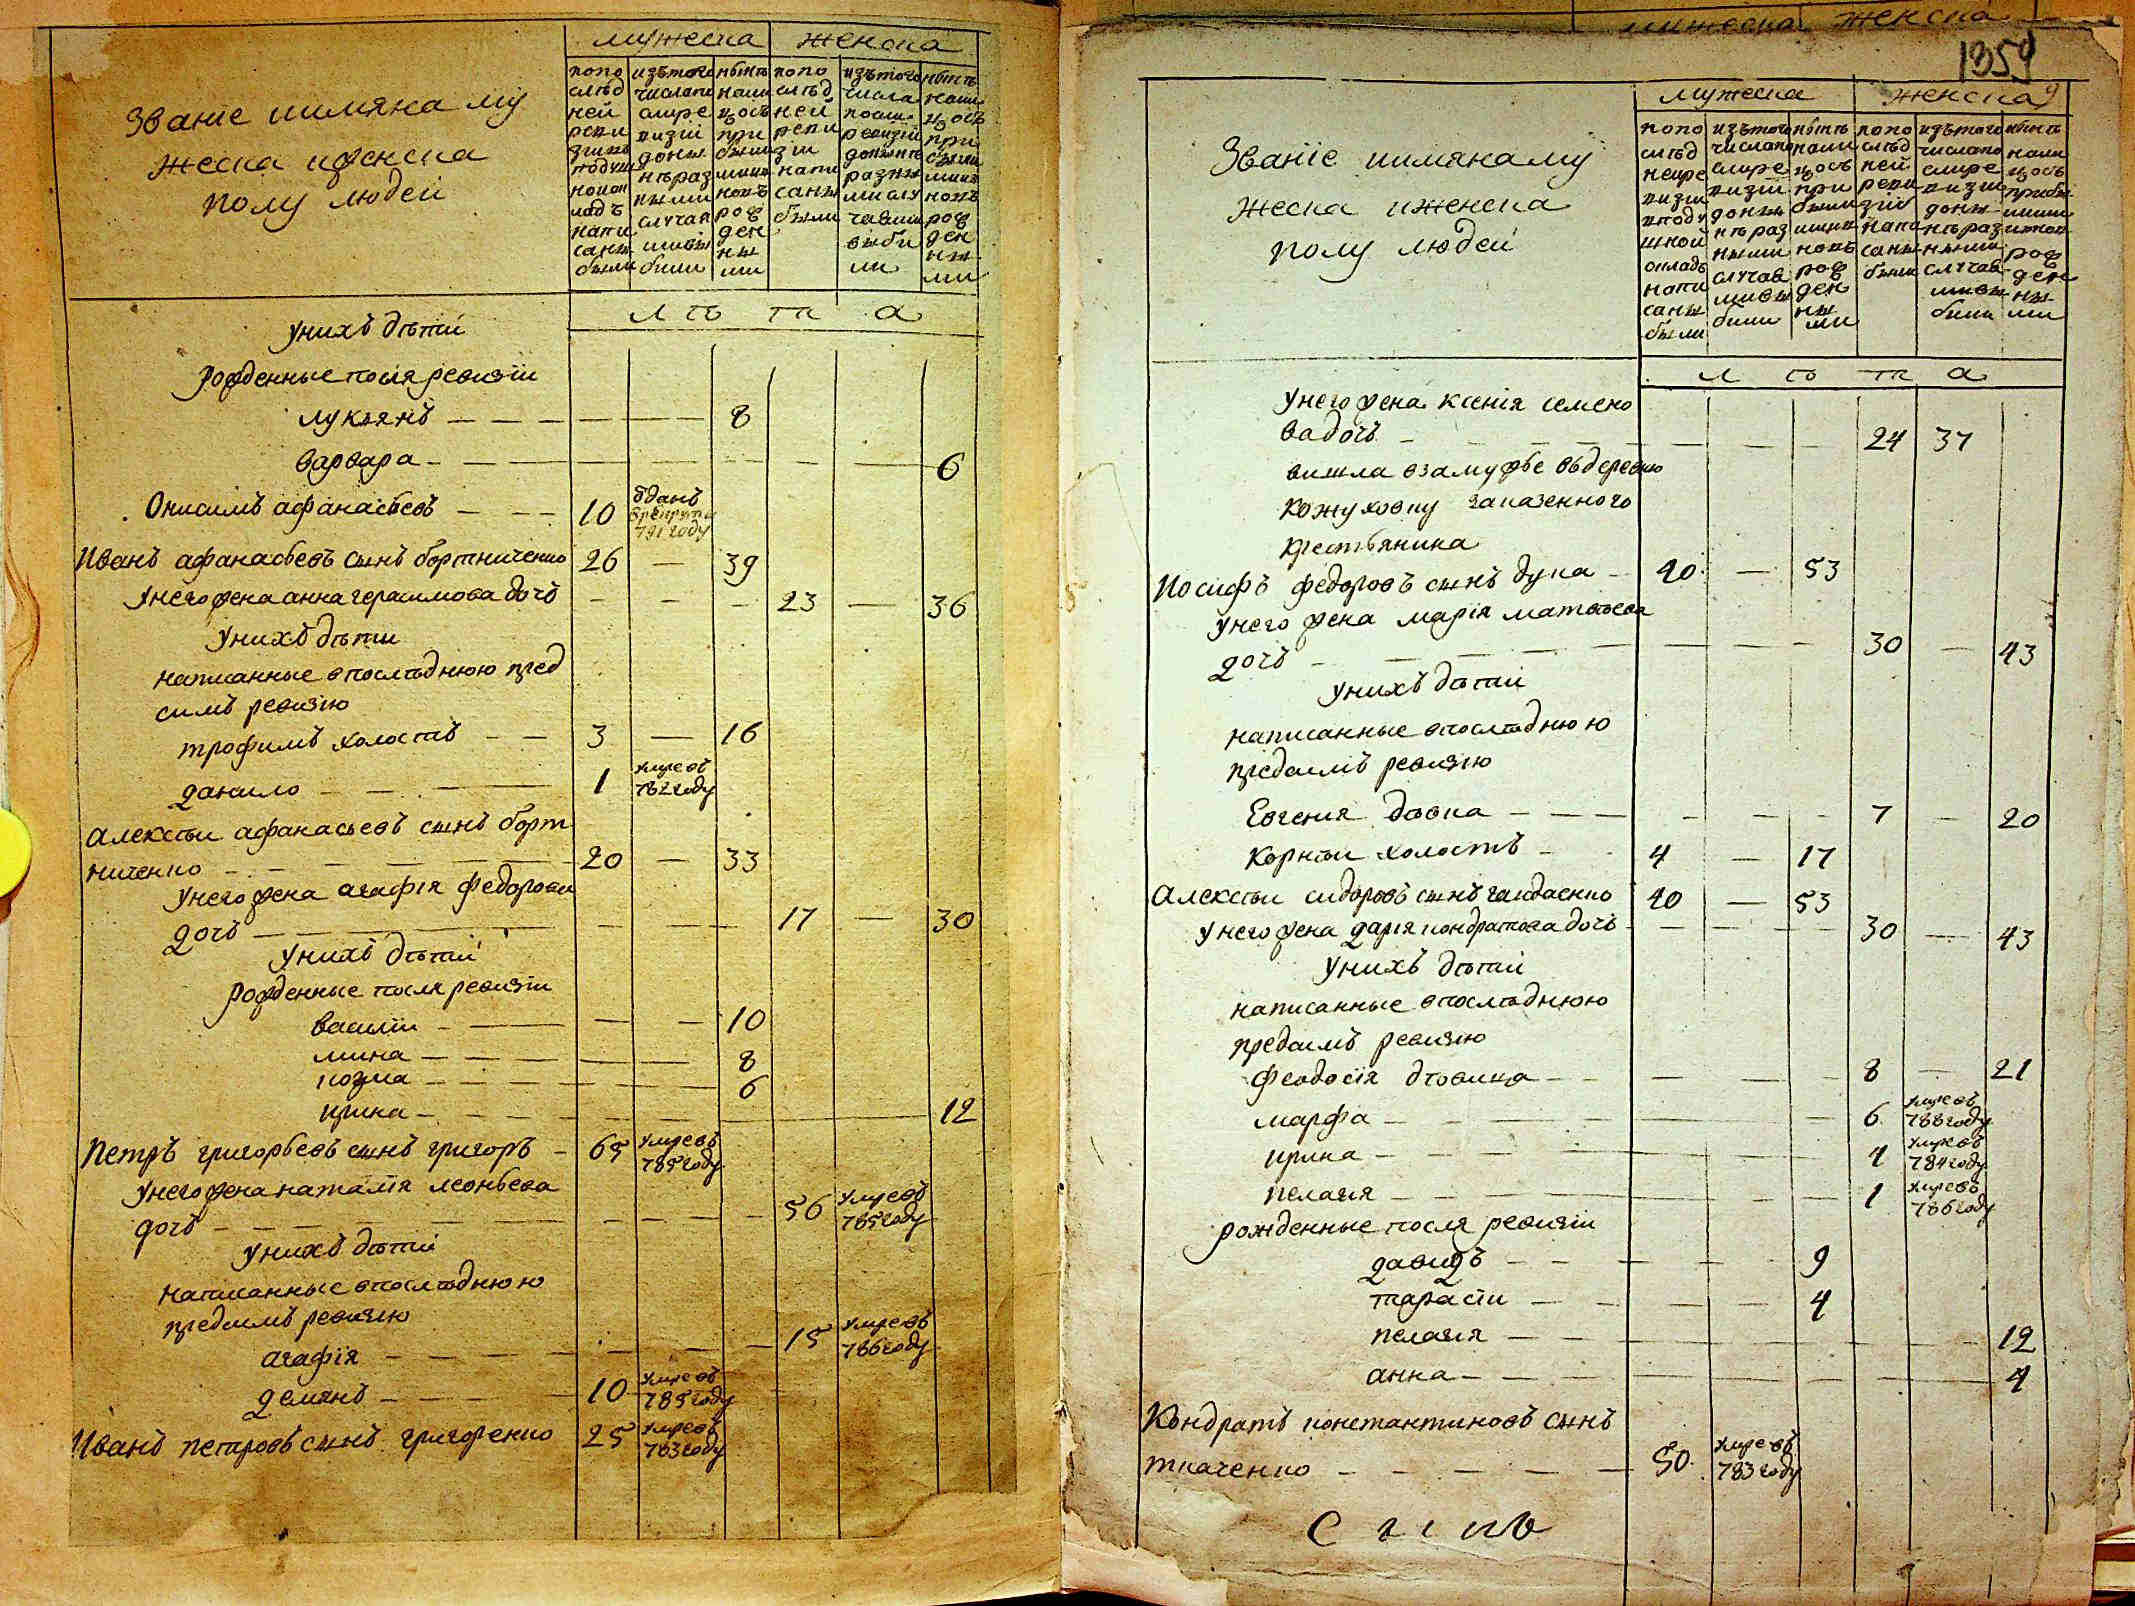 мужеска женска
Званіе иимяна му
жеска иженска
полу людей
попо
слѣд
ней
реви
зіи въ
подуш
ной ок
ладъ
напи
саны
были
изътого
числапо
слѣ ре
визіи
доны
нѣ раз
ными
случая
ми вы
были
нынѣ
нали
цо съ
при
былы
ми и
новъ
рож
ден
ны
ми
попо
слѣд
ней
реви
зіи
напи
саны
были
изътого
числа
посл
ревизіи
донынѣ
разны
ми слу
чаями
выбы
ли
нынѣ
нали
цо съ
при
былы
ми и
новъ
рож
ден
ны
ми
лѣта
унихъ дѣти
рожденные после ревизіи
лукьянъ 8
варвара 6
Онисимъ афанасьевъ 10 отданъ
врекруты
791 году
Иванъ афанасьевъ сынъ бортниченко 26 39
унего жена анна герасимова дочь 23 36
унихъ дѣти
написанные впослѣднюю пред
симъ ревизію
трофимъ холостъ 3 16
данило 1 умревъ
782 году
алексѣи афанасьевъ сынъ борт
ниченко 20 33
унего жена агафія федорова
дочь 17 30
унихъ дѣти
рожденные после ревизіи
василіи 10
мина 8
козма 6
ирина 12
Петръ григорьевъ сынъ григоръ 65 умревъ
785 году
унего жена наталія леоньева
дочь 56 умревъ
785 году
унихъ дѣти
написанные впослѣднюю
предсимъ ревизію
агафія 15 умревъ
786 году
демянъ 10 умревъ
785 году
Иванъ петровъ сынъ григоренко 25 умревъ
783 году
мужеска женска
1359
мужеска женска 9
Званіе иимянаму
жеска иженска
полу людей
попо
слѣд
ней ре
визіи
вподу
шной
окладъ
напи
саны
были
изътого
числапо
слѣ ре
визіи
доны
нѣ раз
ными
случая
ми вы
были
нынѣ
нали
цо съ
при
былы
ми и
новъ
рож
ден
ны
ми
попо
слѣд
ней
реви
зіи
напи
саны
были
изътого
числапо
слѣ ре
визіи
доны
нѣ раз
ными
случая
ми вы
были
нынѣ
нали
цо съ
прибы
лыми
и нов
рож
ден
ны
ми
лѣта
унего жена ксенія семено
ва дочь 24 37
вишла взамужье въдеревню
кожуховку заказенного
крестьянина
Иосифъ федоровъ сынъ дука 40 53
унего жена марія матвѣева
дочь 30 43
унихъ дѣти
написанные впослѣднюю
предсимъ ревизію
Евгения дѣвка 7 20
корнѣи холостъ 4 17
Алексѣи сидоровъ сынъ гайдаенко 40 53
унего жена дарія кондратова дочь 30 43
унихъ дѣти
написанные впослѣднюю
предсимъ ревизію
феодосія дѣвица 8 21
марфа 6 умревъ
788 году
ирина 4 умревъ
784 году
пелагія 1 умревъ
786 году
рожденные после ревизіи
давидъ 9
тарасіи 4
пелагія 12
анна 4
Кондратъ константиновъ сынъ
ткаченко 50 умревъ
783 году